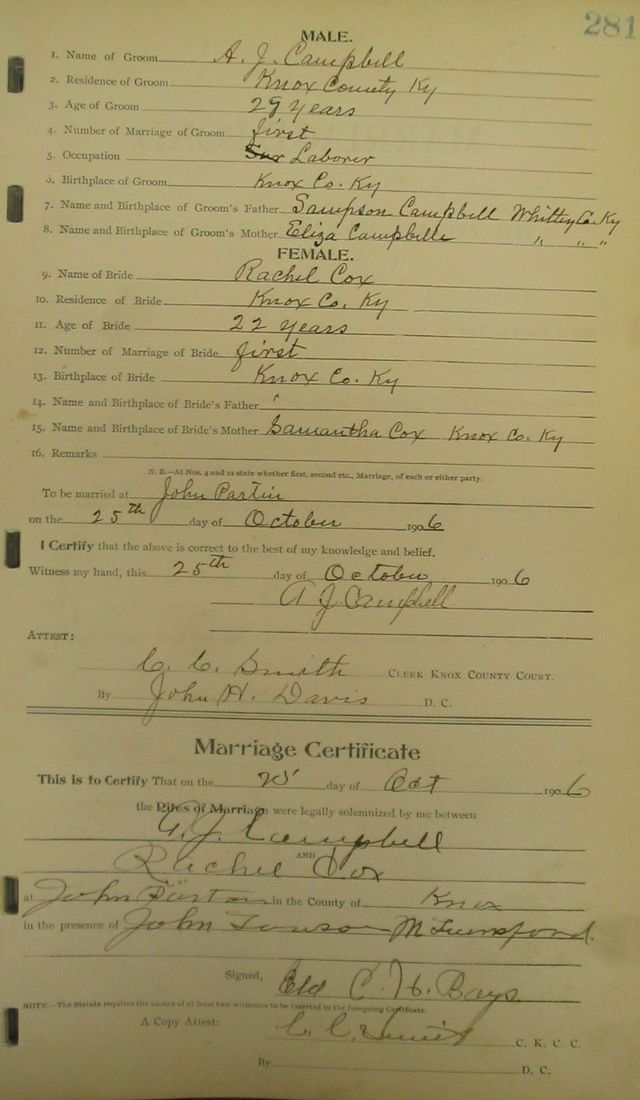 281
MALE.
1. Name of Groom A. J. Campbell
2. Residence of Groom Knox County Ky
3. Age of Groom 29 years
4. Number of Marriage of Groom first
5. Occupation Laborer
6. Birthplace of Groom Knox Co. Ky
7. Name and Birthplace of Groom's Father Sampson Campbell Whitley Co. Ky
8. Name and Birthplace of Groom's Mother Eliza Campbelle " " "
FEMALE.
9. Name of Bride Rachel Cox
10. Residence of Bride Knox Co. Ky
11. Age of Bride 22 years
12. Number of Marriage of Bride first
13. Birthplace of Bride Knox Co. Ky
14. Name and Birthplace of Bride's Father
15. Name and Birthplace of Bride's Mother Samantha Cox Knox Co. Ky
16. Remarks
N. B.—At Nos. 4 and 12 state whether first, second etc., Marriage, of each or either party.
To be married at John Partin
on the 25th day of October 1906
I Certify that the above is correct to the best of my knowledge and belief.
Witness my hand, this 25th day of October 1906
A J Campbell
ATTEST:
C. C. Smith CLERK KNOX COUNTY COURT.
By John H. Davis D. C.
Marriage Certificate
This is to Certify That on the 25 day of Oct 1906
the Rites of Marriage were legally solemnized by me between
A. J. Campbell
AND
Rachel Cox
at John in the County of Knox
in the presence of John M
Signed, Eld C. H. Bays
NOTE.—The Statute requires the names of at least two witnesses to be inserted in the foregoing Certificate.
A Copy Attest: C. C. Smith C. K. C. C.
By D. C.